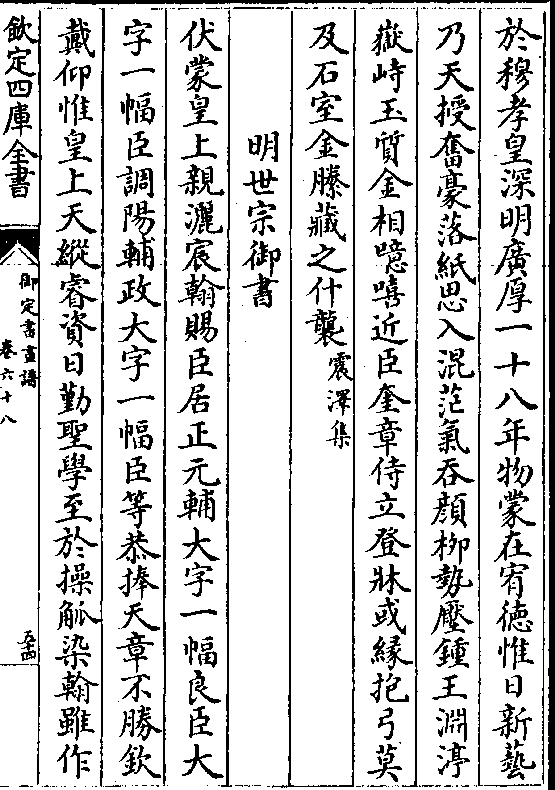 於穆孝皇深明廣厚一十八年物蒙在宥徳惟日新藝
乃天授奮豪落紙思入混茫氣吞顔栁勢壓鍾王淵渟
嶽峙玉質金相噫嘻近臣奎章侍立登牀或緣抱弓莫
及石室金縢藏之什襲震澤集
明世宗御書
伏蒙皇上親灑宸翰賜臣居正元輔大字一幅良臣大
字一幅臣調陽輔政大字一幅臣等恭捧天章不勝欽
戴仰惟皇上天縱睿資日勤聖學至於操觚染翰雖作
欽定四庫全書
御定書畫譜
卷六十八
五四